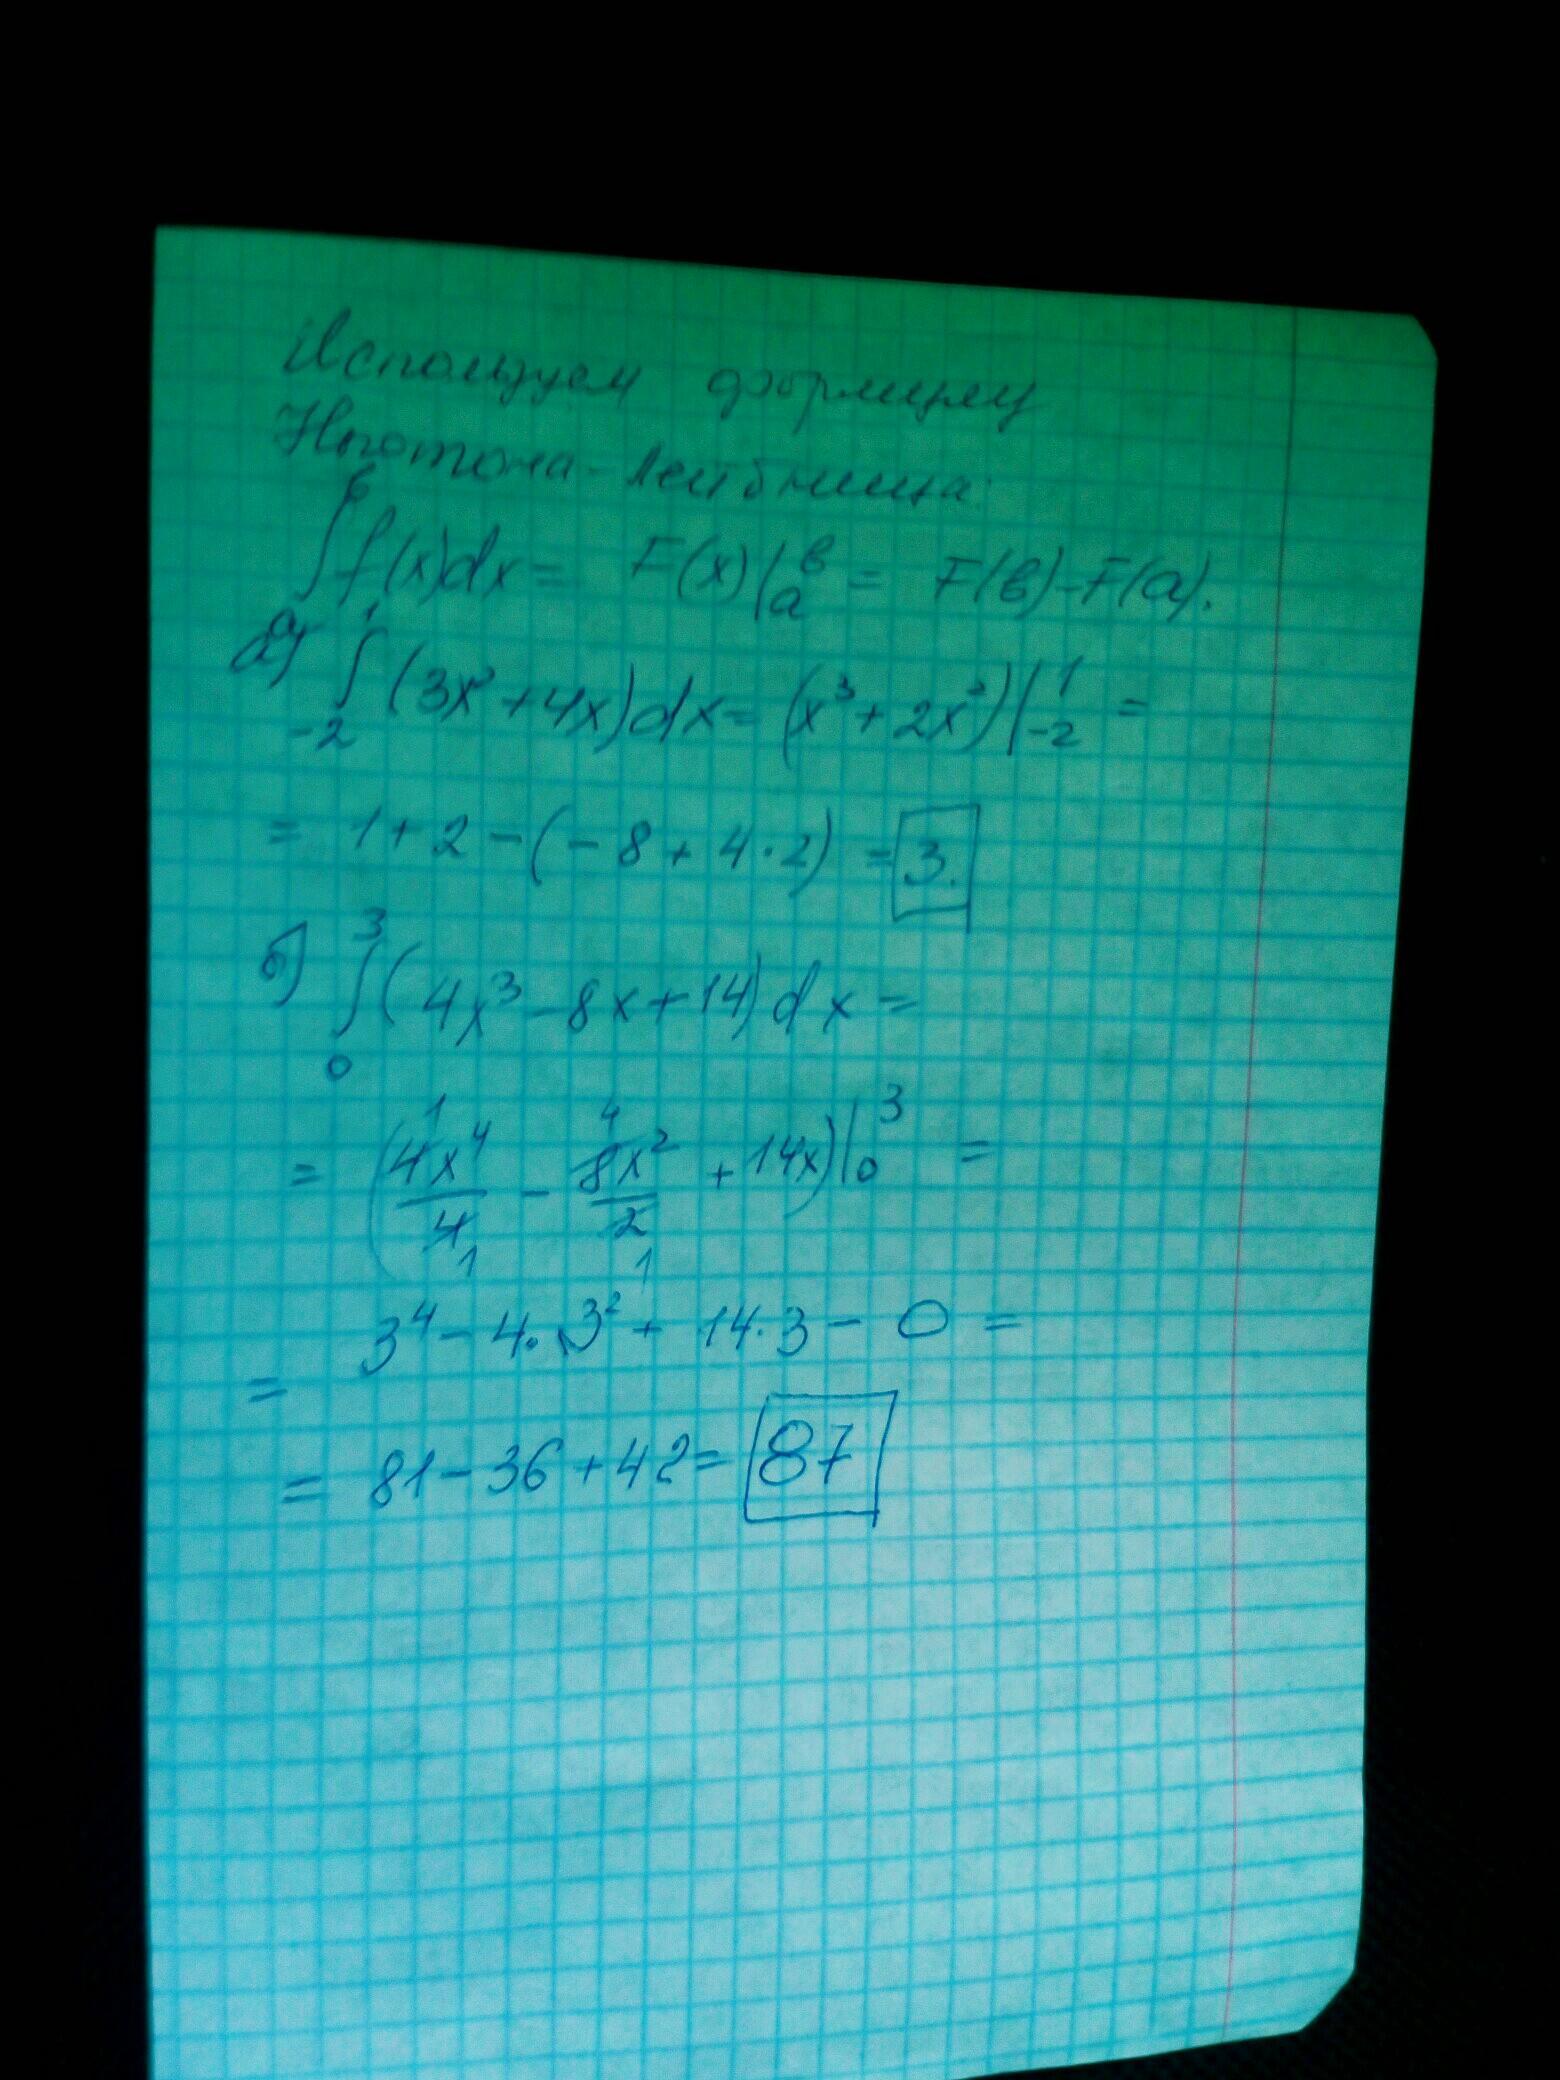 Используем формулу
Ньютона-Лейбница:
∫ₐᵇ f(x)dx = F(x)|ₐᵇ = F(b)-F(a).
а) ∫₋₂¹ (3x²+4x)dx = (x³+2x²)|₋₂¹ =
= 1+2-(-8+4·2) = 3.
б) ∫₀³ (4x³-8x+14)dx =
= (4x⁴/4 - 8x²/2 + 14x)|₀³ =
= 3⁴ - 4·3² + 14·3 - 0 =
= 81-36+42= 87